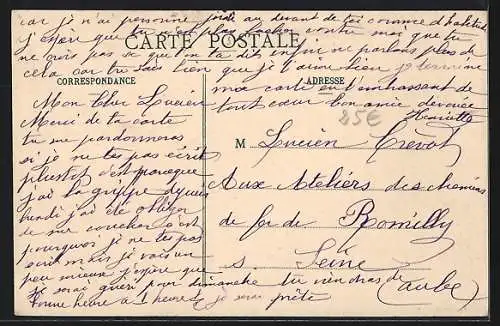 CARTE POSTALE
CORRESPONDANCE
ADRESSE
Mon Cher Lucien
Merci de ta carte
tu me pardonneras
si je ne t'es pas écrit
plustot c'est parceque
j'ai la grippe depuis
lundi j'ai été obliger
de me coucher c'est
pourquoi je ne t'es pas
écrit mais je vais un
peu mieux j'espère que
je serai guéri pour dimanche tu viendras de
bonne heure a 1 heure je serai prête
car je n'ai personne au devant de toi comme d'habitude
j'espère que tu n'es plus fâcher contre moi que tu
ne crois pas ce que on t'a dit enfin ne parlons plus de
cela car tu sais bien que je t'aime bien je termine
ma carte en t'embrassant de
tout cœur ton amie dévouée
Henriette
85€
M Lucien Crevot
Aux Ateliers des chemins
de fer de Romilly
s. Seine
(aube)